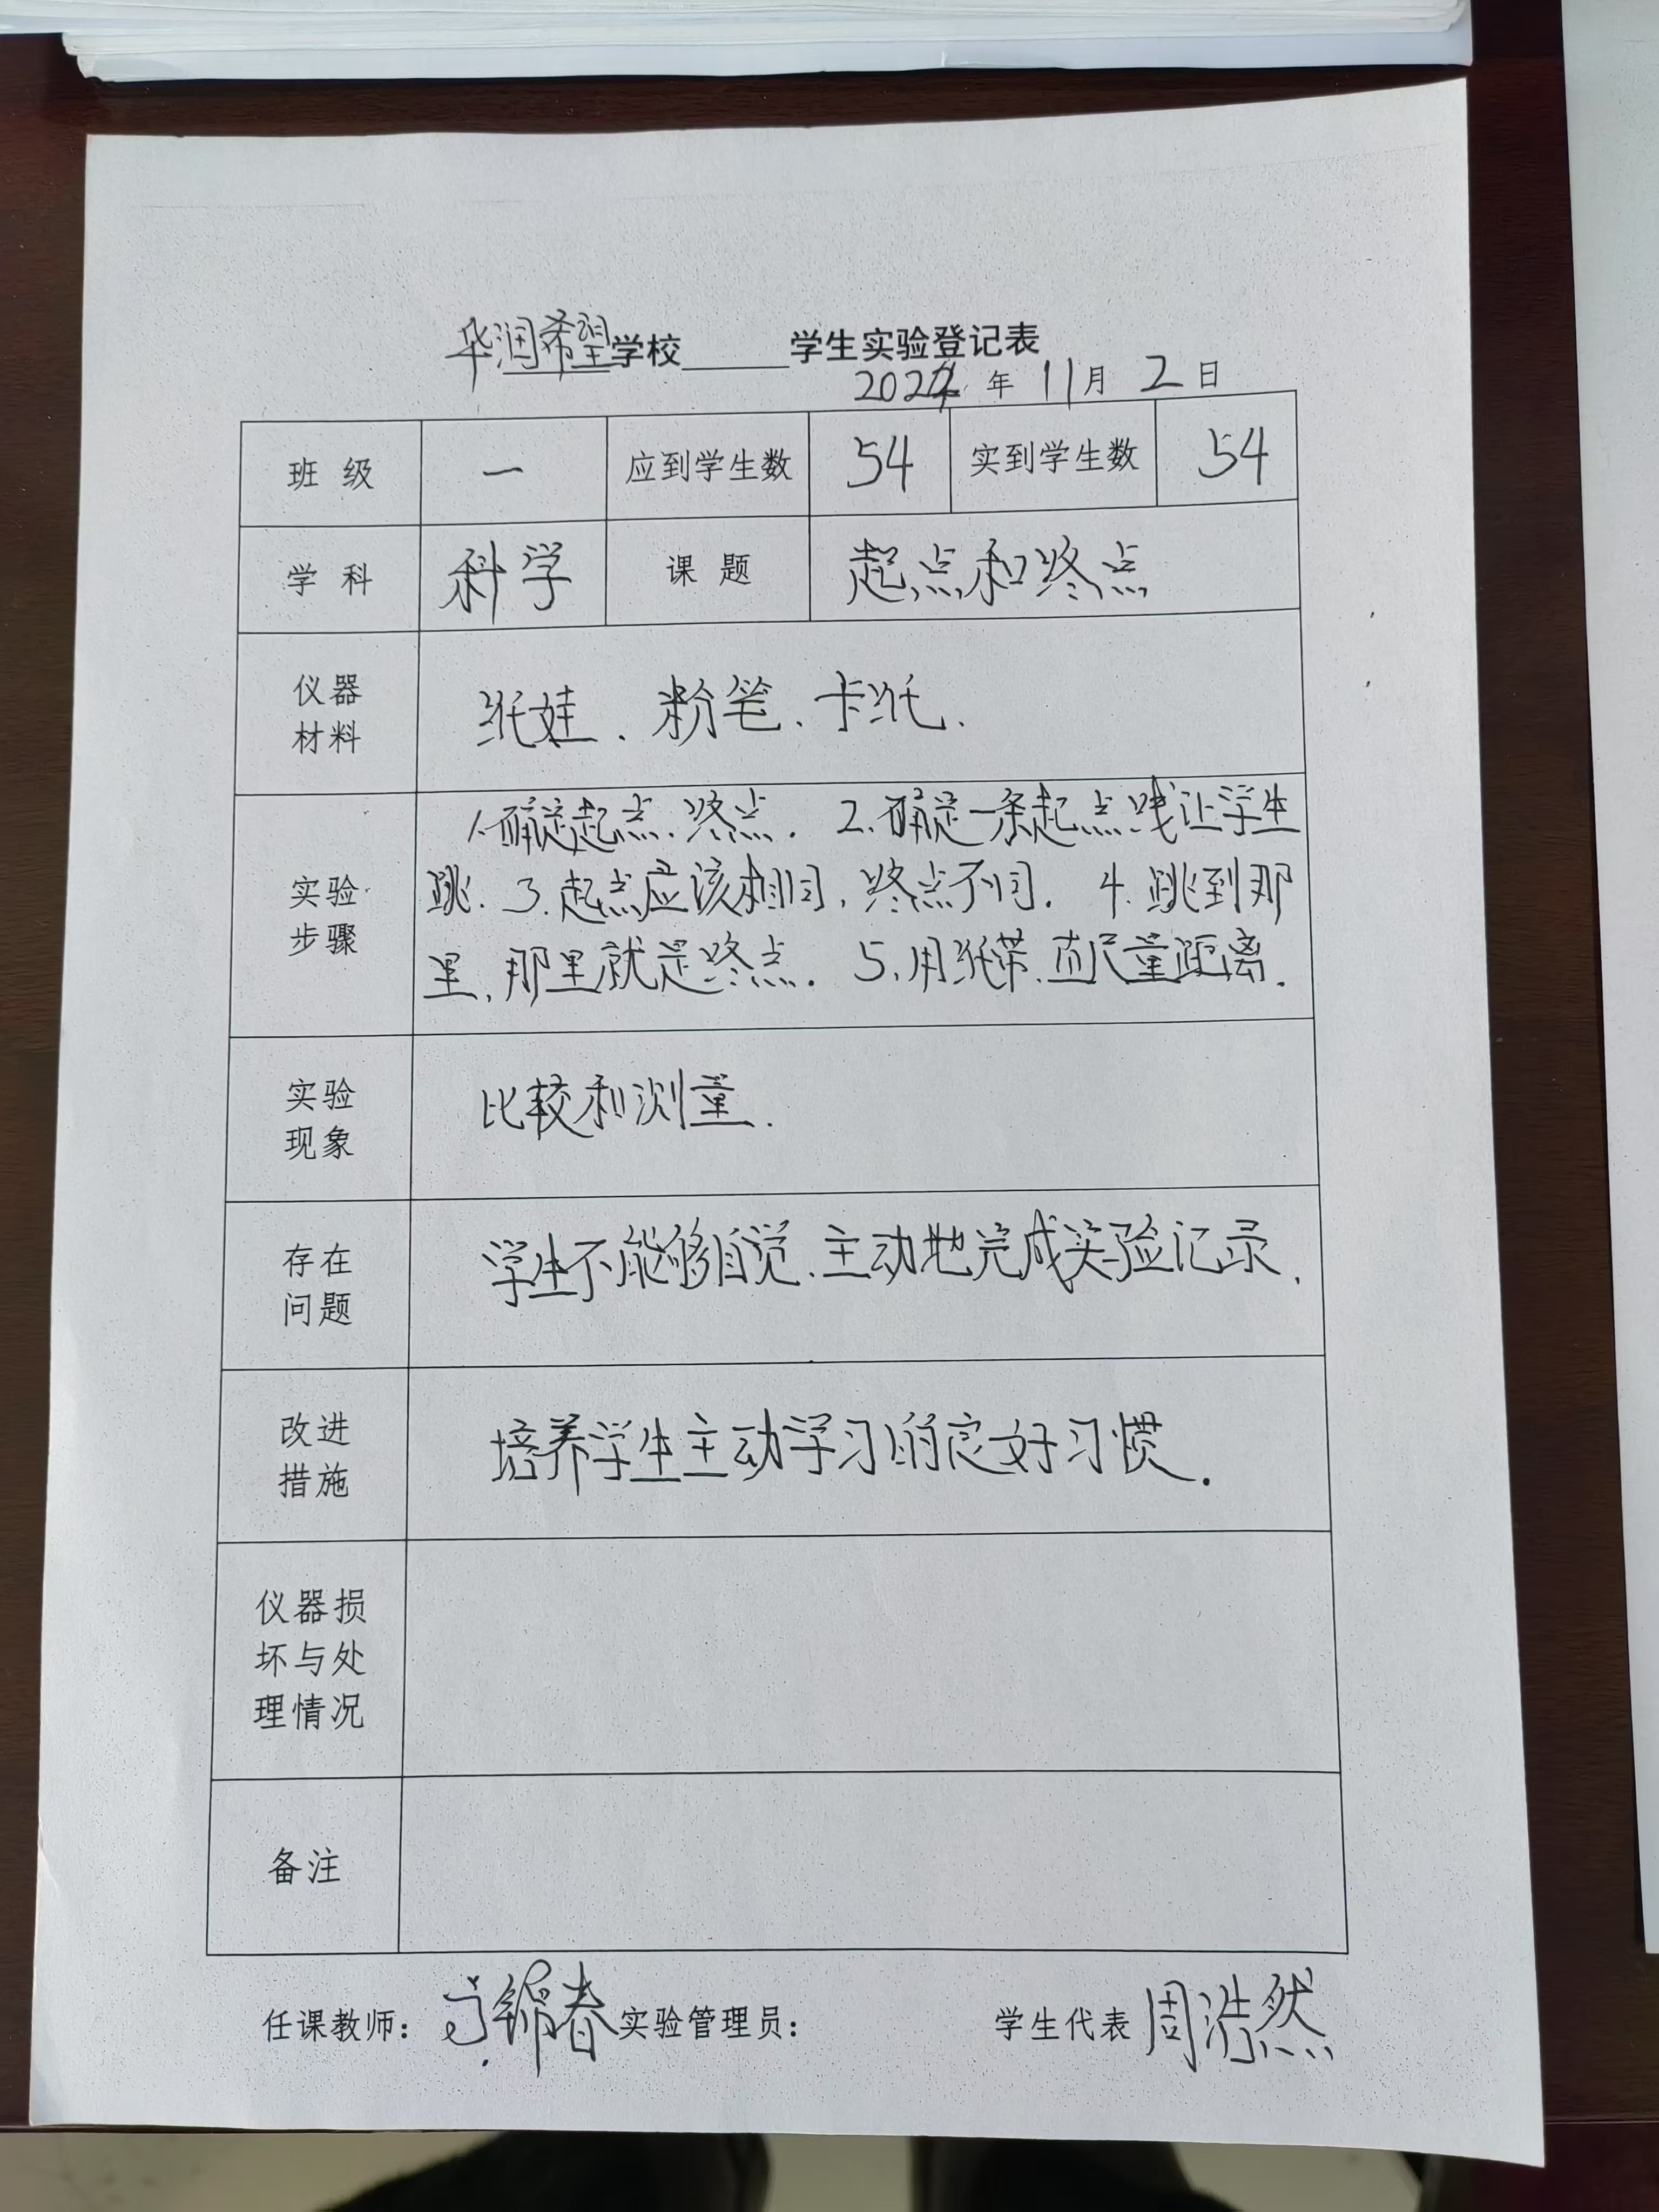 华润希望学校______学生实验登记表
202 年 11月 2日
班 级 一 应到学生数 54 实到学生数 54
学 科 科学 课 题 起点和终点
仪器
材料
纸娃、粉笔、卡纸.
实验
步骤
1.确定起点、终点. 2.确定一条起点线让学生
跳. 3.起点应该相同,终点不同. 4.跳到那
里,那里就是终点. 5.用纸带、直尺量距离.
实验
现象
比较和测量.
存在
问题
学生不能够自觉、主动地完成实验记录.
改进
措施
培养学生主动学习的良好习惯.
仪器损
坏与处
理情况
备注
任课教师: 锦春 实验管理员: 学生代表 周浩然